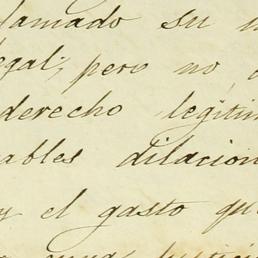 lamado su
egal, pero no,
derecho legitim
ables dilacion
y el gasto qu